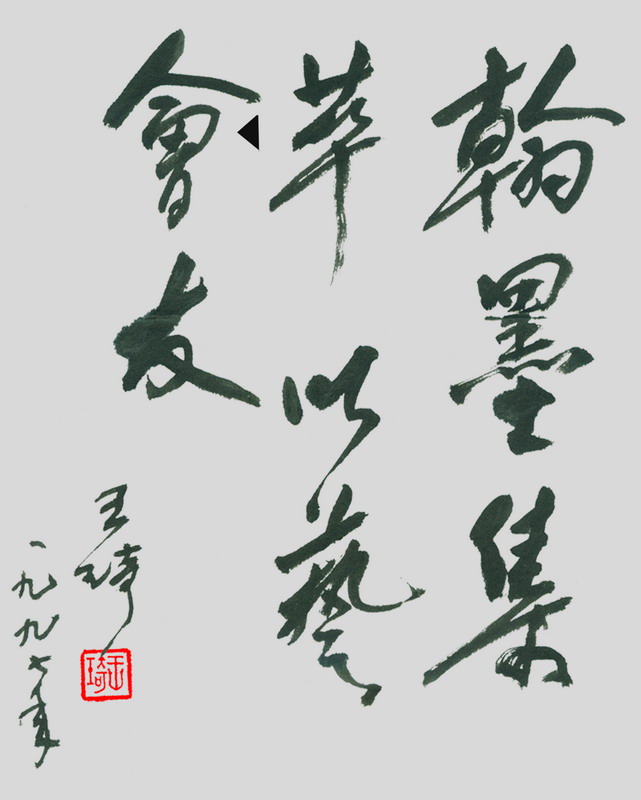 翰墨集
萃以藝
會友
王琦
一九九七年
王琦